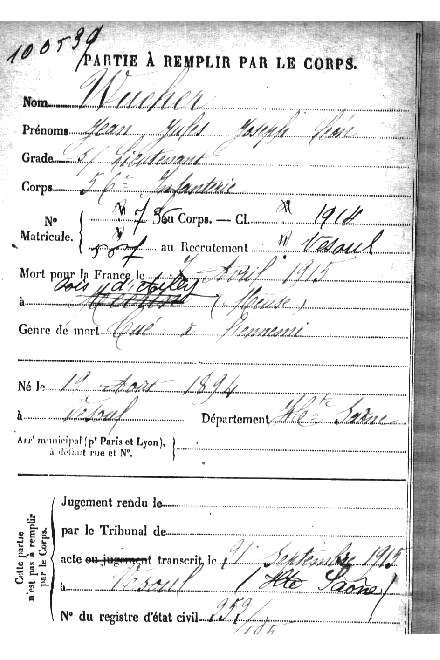 100539
PARTIE À REMPLIR PAR LE CORPS.
Nom Wucher
Prénoms Jean Jules Joseph Léon
Grade S/ Lieutenant
Corps 56e Infanterie
N° Matricule. { 736 au Corps. — Cl. 1914
au Recrutement Vesoul
Mort pour la France le Avril 1915
bois d'Ailly
à (Meuse)
Genre de mort Tué à l'ennemi
Né le Août 1894
à Vesoul Département Hte Saône
Arr' municipal (p' Paris et Lyon),
à défaut rue et N°.
Cette partie n'est pas à remplir par le Corps.
Jugement rendu le
par le Tribunal de
acte ou jugement transcrit le 21 Septembre 1915
à Vesoul (Hte Saône)
N° du registre d'état civil 959/